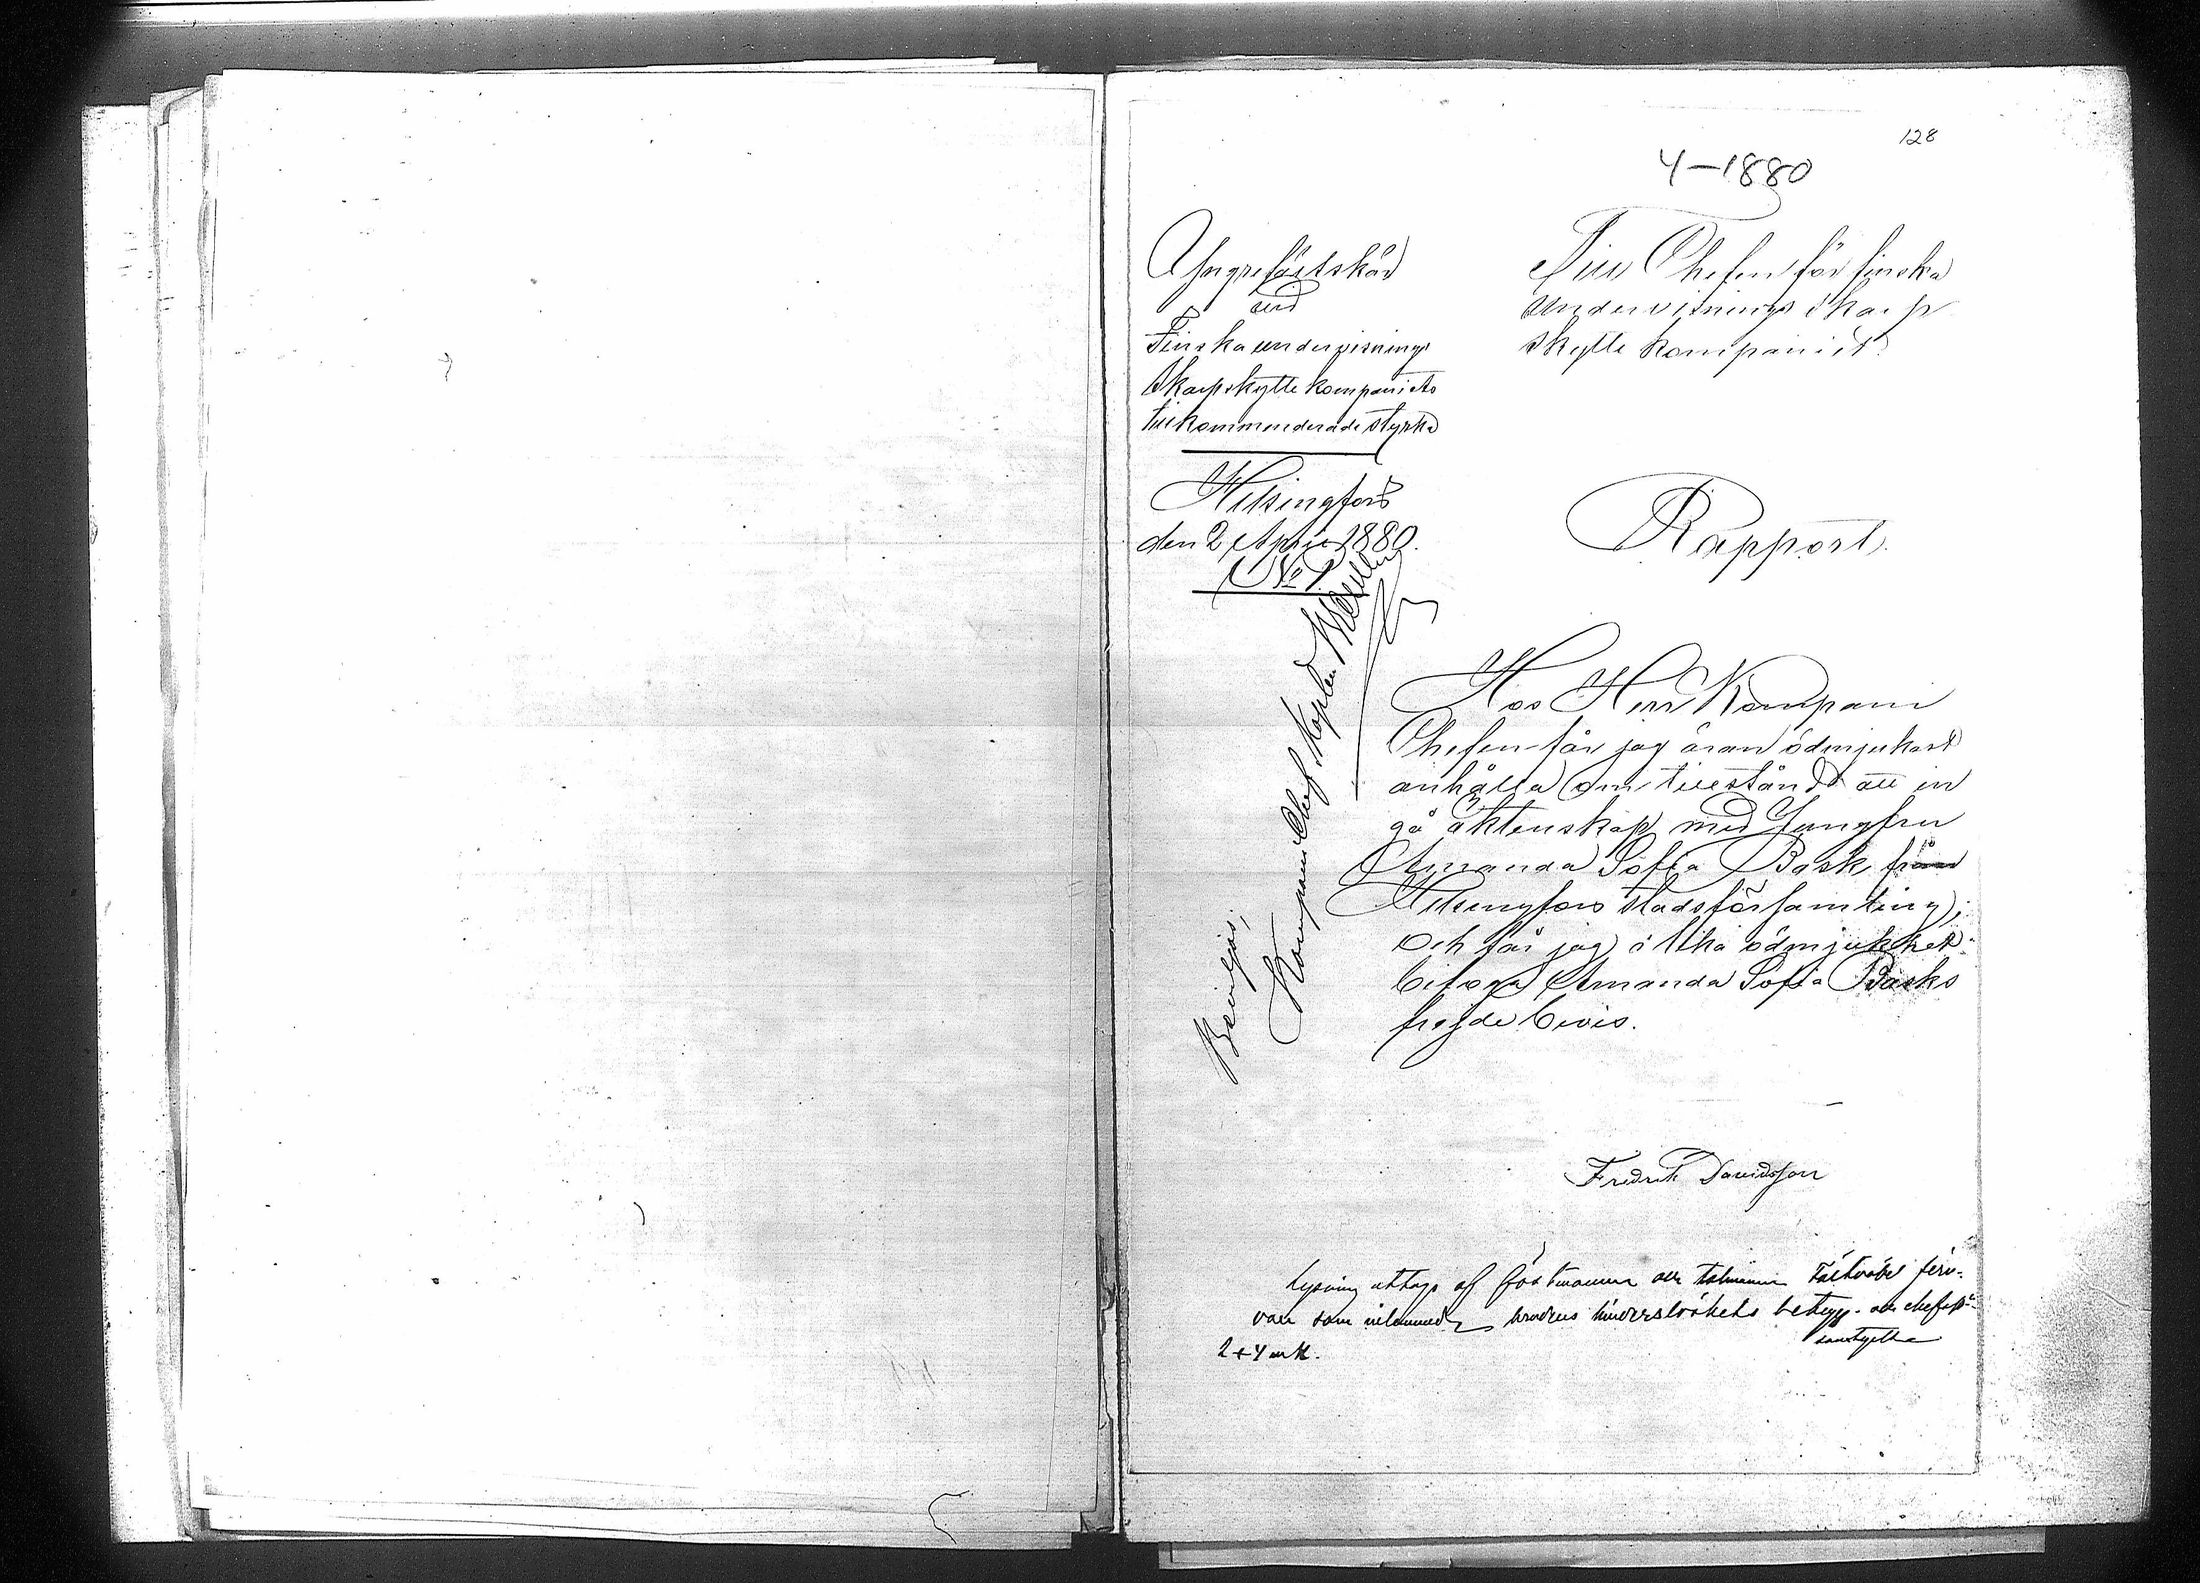 128
4-1880
Yngre förstskär
vid
Finska undervisnings
skarpskytte kompaniets
tillkommenderade styrka
Helsingfors
den 2 April 1880.
No 1.
Till Chefen för finska
undervisnings skarp
skytte kompaniet.
Rapport.
Hos Herr Kompani
Chefen får jag äran ödmjukast
anhålla om tillstånd att in
gå äktenskap med Jungfru
Amanda Sofia Bask från
Helsingfors stadsförsamling;
och får jag i lika ödmjukhet
bifoga Amanda Sofia Basks
frejdebevis.
Beviljas;
Kompani Chef, Kapten
Fredrik Davidsson
Lysning uttages af fästmannen och
som brudens betyg och chefens
samtycke
2+4 mk.